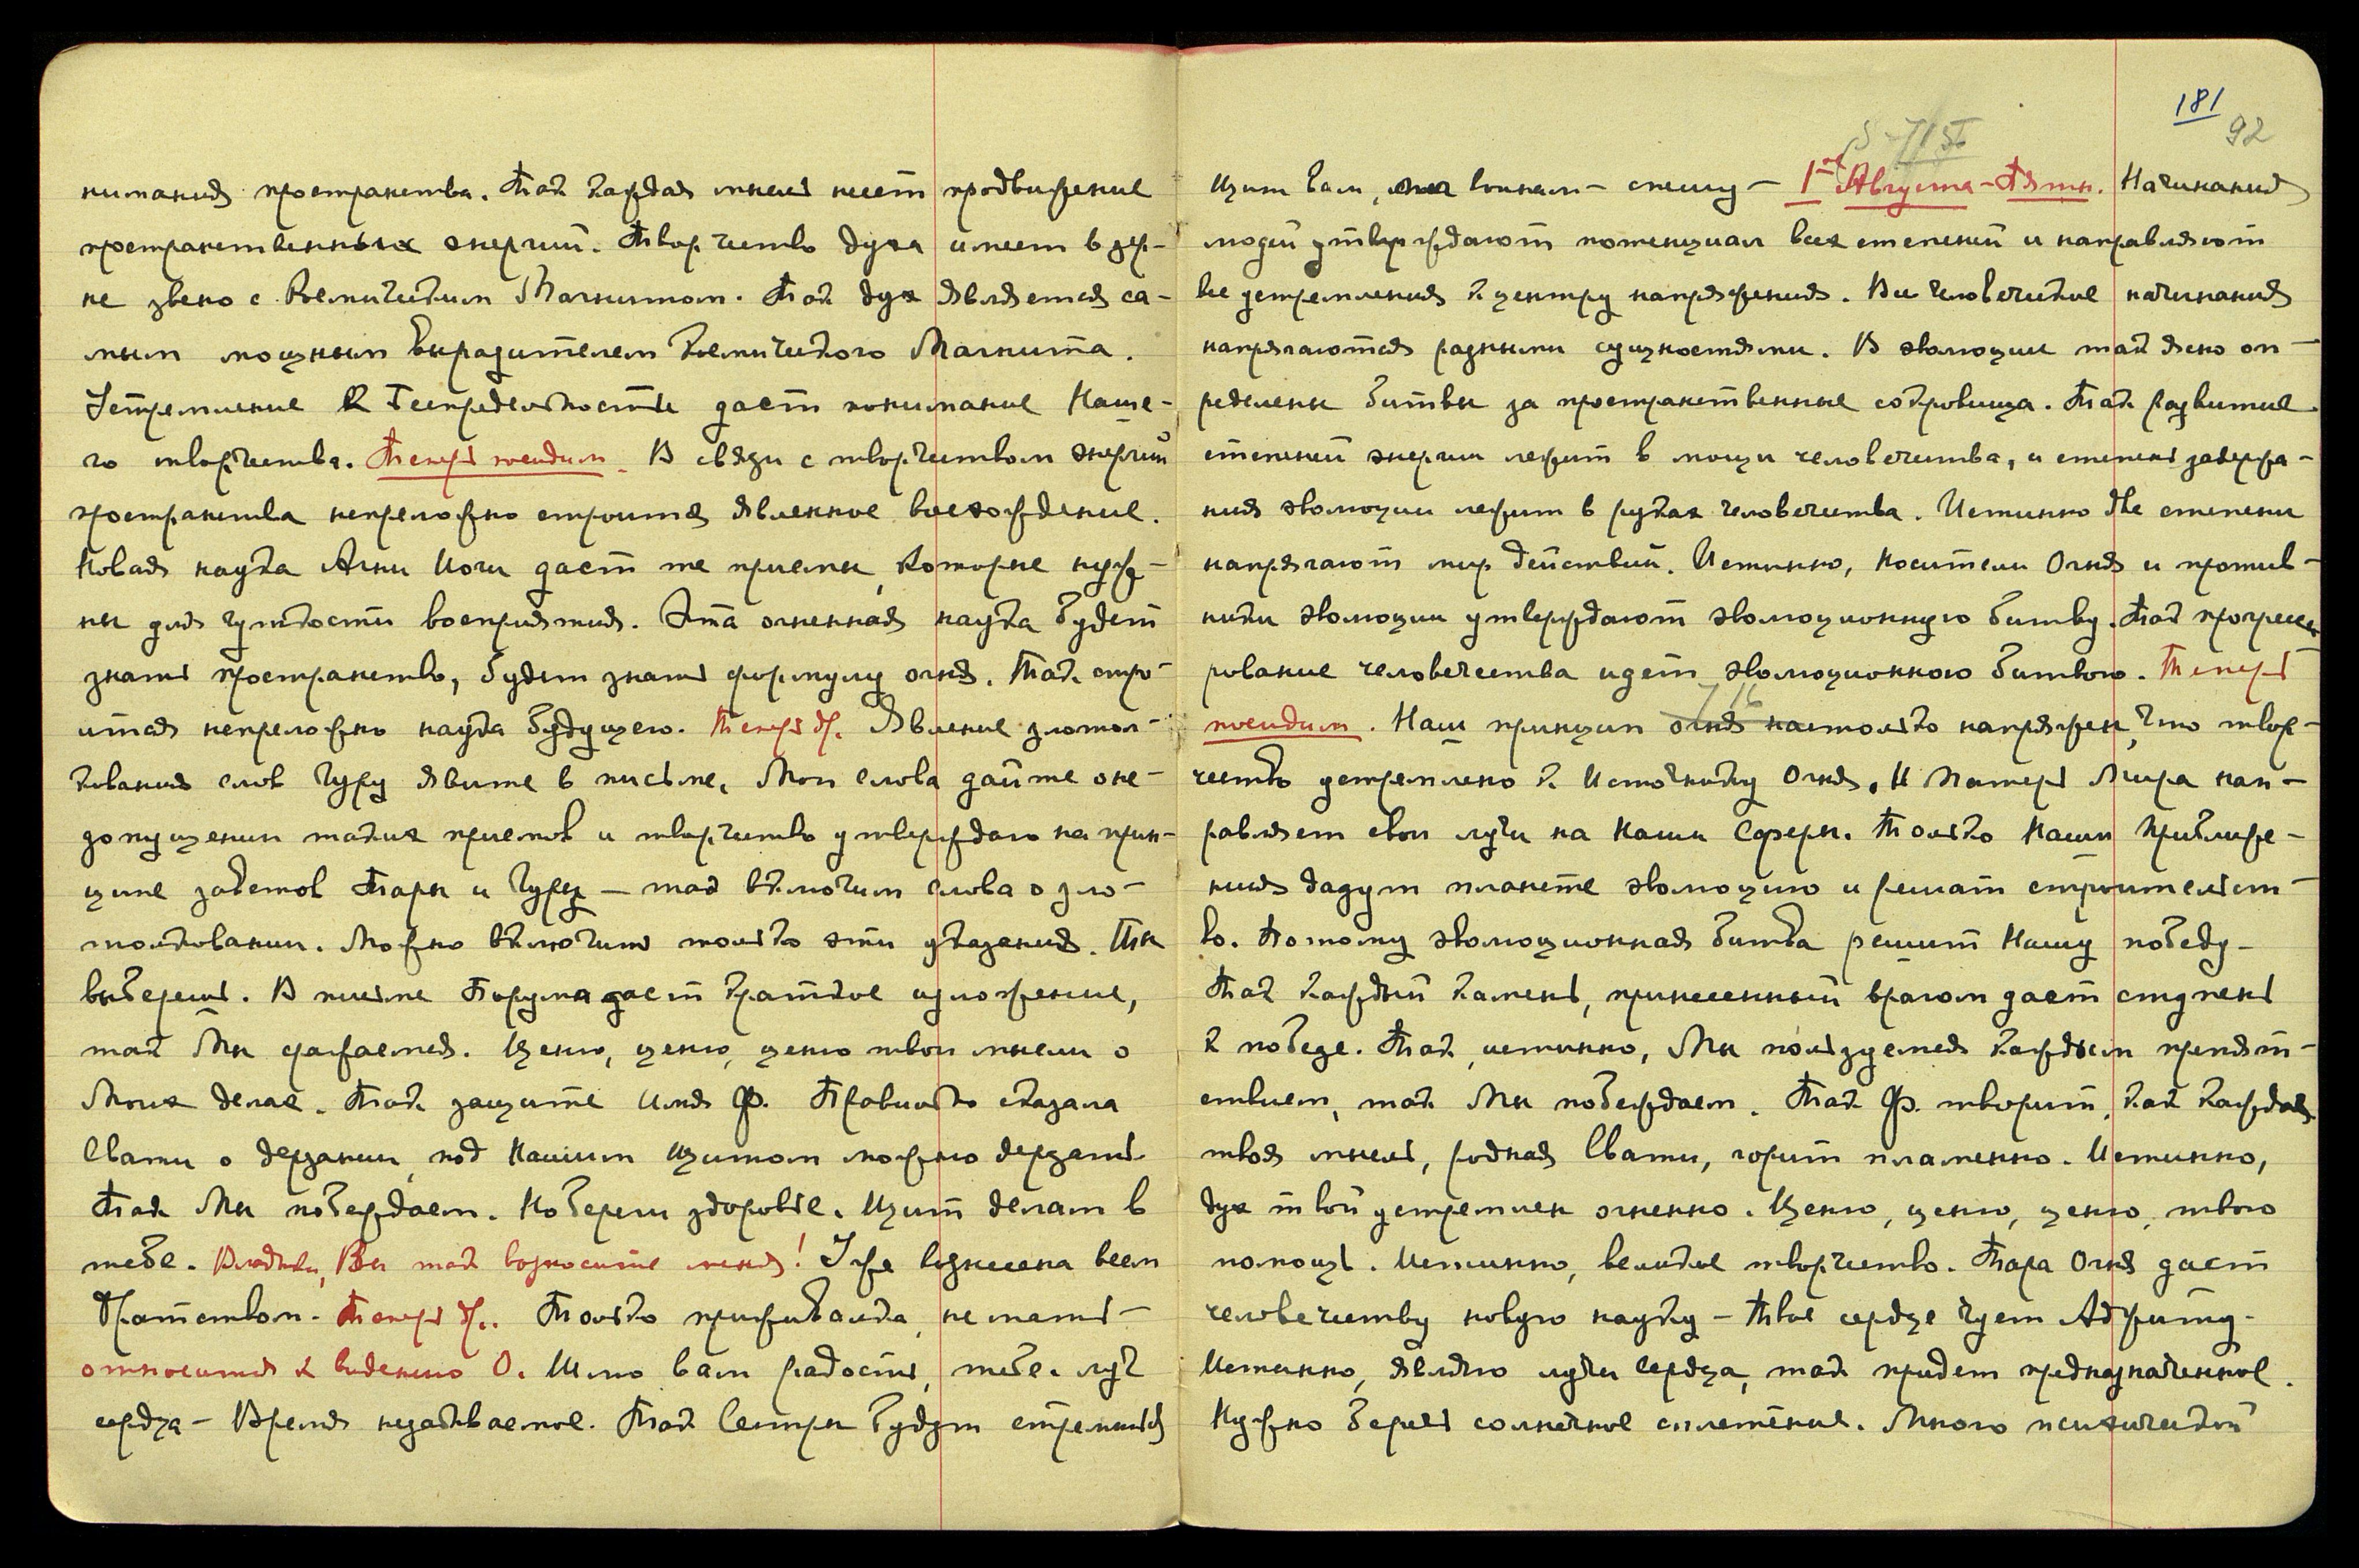 нимания пространства. Так каждая мысль несет продвижение
пространственных энергий. Творчество духа имеет в зер-
не звено с Космическим Магнитом. Так дух является са-
мым мощным выразителем Космического Магнита.
Устремление к Беспредельности дает понимание Наше-
го творчества. Теперь поседим. В связи с творчеством энергий
пространства непреложно строится явленное восхождение.
Новая наука Агни Йоги дает те приемы, которые нуж-
ны для чуткости восприятия. Эта огненная наука будет
знать пространство, будет знать формулу огня. Так стро-
ится непреложно наука будущего. Теперь др. Явление злотол-
кования слов Гуру явите в письме. Мои слова дайте о не-
допущении таких приемов и творчество утверждаю на прин-
ципе заветов Тары и Гуру – так включим слова о зло-
толковании. Можно включить только эти указания. Ты
выберешь. В письме Порума дает краткое изложение,
так Мы сражаемся. Ценю, ценю, ценю твои мысли о
Моих делах. Так защите имя Ф. Правильно сказала
Свати о дерзании, под Нашим Щитом можно дерзать.
Так Мы побеждаем. Но береги здоровье. Щит делам в
тебе. Владыка, Вы так возносите меня! Уже вознесена всем
Братством. Теперь др. Только приживалка, не мать –
относится к видению О. Шлю вам радость, тебе луч
сердца – Время незабываемое. Так Сестры будут стремиться
181
92
Щит вам, воинам – спешу – 1ое Августа – Пятн. Начинания
людей утверждают потенциал всех степеней и направляют
все устремления к центру напряжения. Все человеческие начинания
напрягаются разными сущностями. В эволюции так ясно оп-
ределены битвы за пространственные сокровища. Так развитие
степеней энергии лежит в мощи человечества, и степень задержа-
ния эволюции лежит в руках человечества. Истинно две степени
напрягают мир действий. Истинно, Носители Огня и против-
ники эволюции утверждают эволюционную битву. Так прогресси-
рование человечества идет эволюционною битвою. Теперь
поседим. Наш принцип огня настолько напряжен, что твор-
чество устремлено к Источнику Огня. И Матерь Мира нап-
равляет свои лучи на Наши Сферы. Только Наши приближе-
ния дадут планете эволюцию и решат строительст-
во. Потому эволюционная битва решит Нашу победу.
Так каждый камень, принесенный врагом дает ступень
к победе. Так, истинно, Мы пользуемся каждым препят-
ствием, так Мы побеждаем. Так Ф. творит, как каждая
твоя мысль, родная Свати, горит пламенно. Истинно,
дух твой устремлен огненно. Ценю, ценю, ценю, твою
помощь. Истинно, великое творчество. Тара Огня дает
человечеству новую науку – Твое сердце чует Аджиту.
Истинно, являю лучи Сердца, так придет предназначенное.
Нужно беречь солнечное сплетение. Много психической